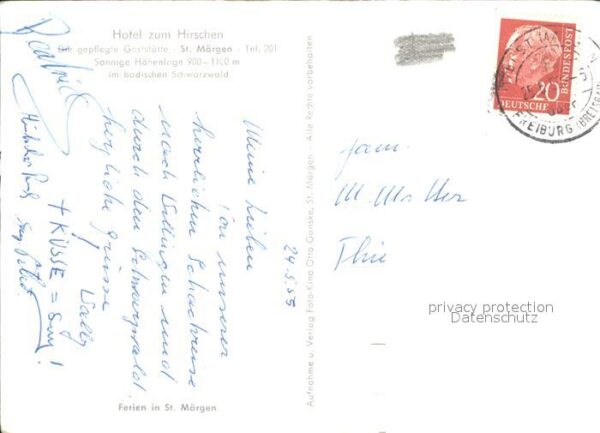 Hotel zum Hirschen
Die gepflegte Gaststätte - St. Märgen - Tel. 201
Sonnige Höhenlage 900–1100 m
im badischen Schwarzwald
24.5.55
Meine Lieben
von unserer
herrlichen Schachreise
nach Villingen und
durch den Schwarzwald.
herzliche Grüsse
Wally
+ KÜSSE =
Ferien in St. Märgen
Aufnahme u. Verlag Foto-Kino Otto Ganske, St. Märgen - Alle Rechte vorbehalten
20
DEUTSCHE
BUNDESPOST
FREIBURG (BREISGAU)
Fam.
privacy protection
Datenschutz